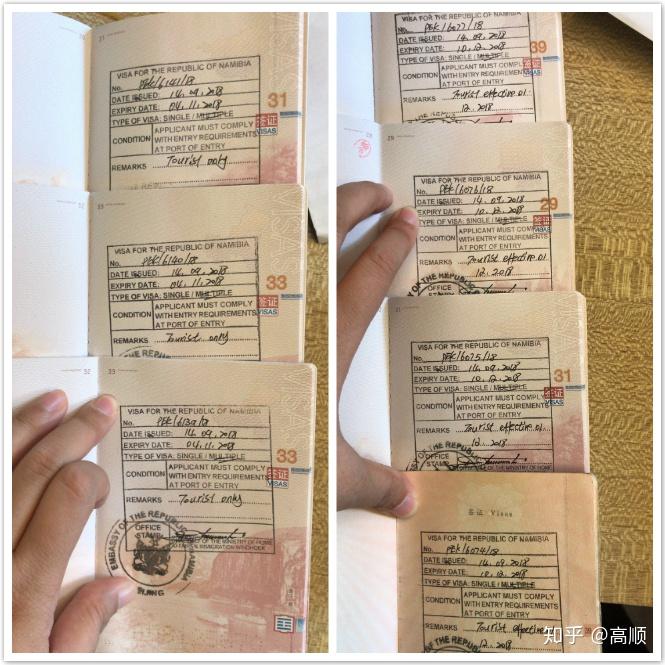 VISA FOR THE REPUBLIC OF NAMIBIA
No. PEK/6141/18
DATE ISSUED: 14.09.2018
EXPIRY DATE: 04.11.2018
TYPE OF VISA: SINGLE / MULTIPLE
CONDITION APPLICANT MUST COMPLY
WITH ENTRY REQUIREMENTS
AT PORT OF ENTRY
REMARKS Tourist only
31
签证
VISAS
VISA FOR THE REPUBLIC OF NAMIBIA
No. PEK/6140/18
DATE ISSUED: 14.09.2018
EXPIRY DATE: 04.11.2018
TYPE OF VISA: SINGLE / MULTIPLE
CONDITION APPLICANT MUST COMPLY
WITH ENTRY REQUIREMENTS
AT PORT OF ENTRY
REMARKS Tourist only
33
签证
VISAS
VISA FOR THE REPUBLIC OF NAMIBIA
No. PEK/6139/18
DATE ISSUED: 14.09.2018
EXPIRY DATE: 04.11.2018
TYPE OF VISA: SINGLE / MULTIPLE
CONDITION APPLICANT MUST COMPLY
WITH ENTRY REQUIREMENTS
AT PORT OF ENTRY
REMARKS Tourist only
33
签证
VISAS
OFFICE
STAMP
EMBASSY OF THE REPUBLIC OF NAMIBIA
BEIJING
VISA FOR THE REPUBLIC OF NAMIBIA
No. PEK/6077/18
DATE ISSUED: 14.09.2018
EXPIRY DATE: 10.12.2018
TYPE OF VISA: SINGLE / MULTIPLE
CONDITION APPLICANT MUST COMPLY
WITH ENTRY REQUIREMENTS
AT PORT OF ENTRY
REMARKS Tourist effective 01
12.2018
39
签证
VISAS
VISA FOR THE REPUBLIC OF NAMIBIA
No. PEK/6076/18
DATE ISSUED: 14.09.2018
EXPIRY DATE: 10.12.2018
TYPE OF VISA: SINGLE / MULTIPLE
CONDITION APPLICANT MUST COMPLY
WITH ENTRY REQUIREMENTS
AT PORT OF ENTRY
REMARKS Tourist effective 01
12.2018
29
签证
VISAS
OF THE REPUBLIC
VISA FOR THE REPUBLIC OF NAMIBIA
No. PEK/6075/18
DATE ISSUED: 14.09.2018
EXPIRY DATE: 10.12.2018
TYPE OF VISA: SINGLE / MULTIPLE
CONDITION APPLICANT MUST COMPLY
WITH ENTRY REQUIREMENTS
AT PORT OF ENTRY
REMARKS Tourist effective 01
12.2018
31
签证
VISAS
OFFICE
STAMP
签证 Visas
VISA FOR THE REPUBLIC OF NAMIBIA
No. PEK/6074/18
DATE ISSUED: 14.09.2018
EXPIRY DATE: 10.12.2018
TYPE OF VISA: SINGLE / MULTIPLE
CONDITION APPLICANT MUST COMPLY
WITH ENTRY REQUIREMENTS
AT PORT OF ENTRY
REMARKS Tourist effective
12.2018
OF THE REPUBLIC
知乎 @高顺